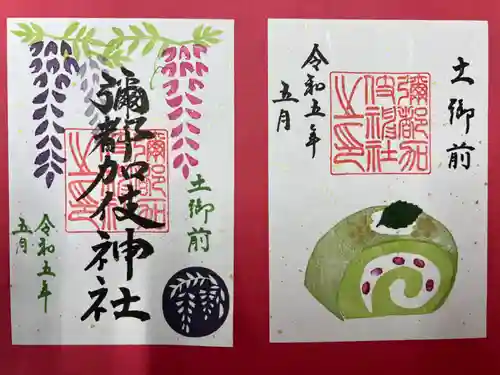 彌都加伎神社
彌都加
伎神社
之印
土御前
令和五年
五月
土御前
彌都加
伎神社
之印
令和五年
五月